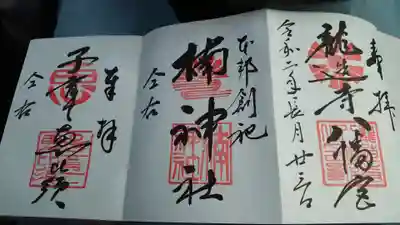 奉拝
龍造寺八幡宮
令和二年長月廿三日
本邦創祀
楠神社
仝右
奉拝
子育恵比須
仝右